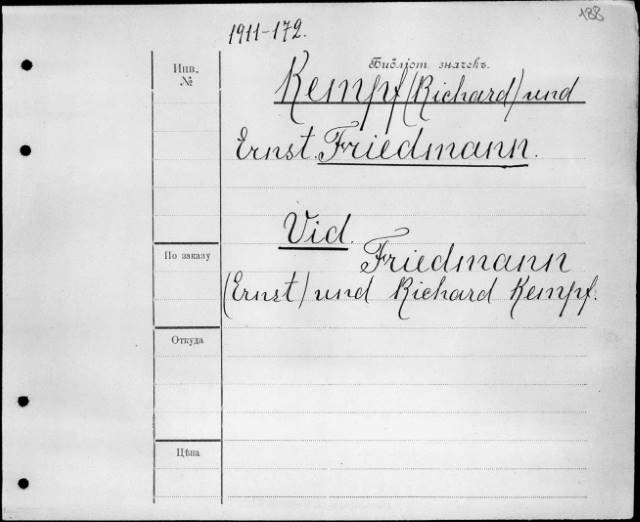 188
1911-172.
Инв.
№
Библіот. значекъ.
Kempf (Richard) und
Ernst. Friedmann.
Vid.
По заказу
Friedmann
(Ernst) und Richard Kempf.
Откуда
Цѣна